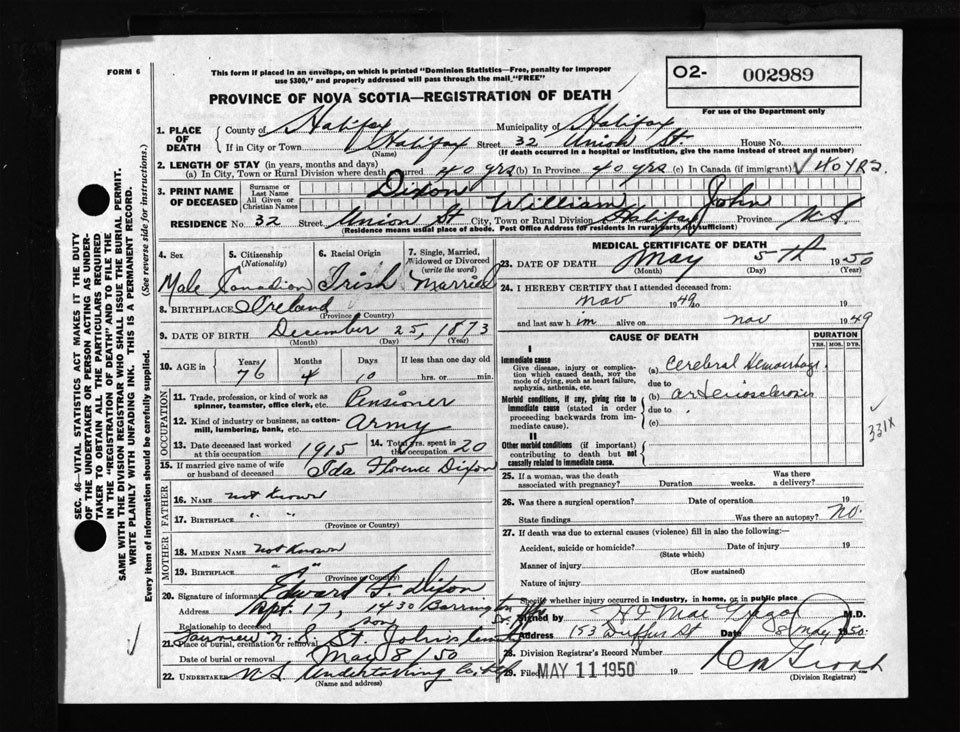 FORM 6
This form if placed in an envelope, on which is printed "Dominion Statistics—Free, penalty for improper
use $300," and properly addressed will pass through the mail "FREE"
O2- 002989
For use of the Department only
PROVINCE OF NOVA SCOTIA—REGISTRATION OF DEATH
1. PLACE OF DEATH
County of Halifax Municipality of Halifax
If in City or Town Halifax Street 32 Union St. House No.
(Name) (If death occurred in a hospital or institution, give the name instead of street and number)
2. LENGTH OF STAY (in years, months and days)
(a) In City, Town or Rural Division where death occurred 40 yrs (b) In Province 40 yrs (c) In Canada (if immigrant) √ 40 YRS.
3. PRINT NAME OF DECEASED
Surname or Last Name Dixon
All Given or Christian Names William John
RESIDENCE No. 32 Street Union St City, Town or Rural Division Halifax Province N.S.
(Residence means usual place of abode. Post Office Address for residents in rural parts not sufficient)
4. Sex
5. Citizenship (Nationality)
6. Racial Origin
7. Single, Married, Widowed or Divorced (write the word)
Male Canadian Irish Married
8. BIRTHPLACE Ireland
(Province or Country)
9. DATE OF BIRTH December 25, 1873
(Month) (Day) (Year)
10. AGE in Years 76 Months 4 Days 10 If less than one day old
hrs. or min.
OCCUPATION
11. Trade, profession, or kind of work as spinner, teamster, office clerk, etc. Pensioner
12. Kind of industry or business, as cotton-mill, lumbering, bank, etc. Army
13. Date deceased last worked at this occupation 1915 14. Total yrs. spent in this occupation 20
15. If married give name of wife or husband of deceased Ida Florence Dixon
FATHER
16. NAME not known
17. BIRTHPLACE " "
(Province or Country)
MOTHER
18. MAIDEN NAME Not Known
19. BIRTHPLACE " "
(Province or Country)
20. Signature of informant Edward F. Dixon
Address Apt. 17, 1430 Barrington
Relationship to deceased son
21. Place of burial, cremation or removal Fairview N.S. St. John's
Date of burial or removal May 8/50
22. UNDERTAKER N.S. Undertaking Co. Ltd
(Name and address)
MEDICAL CERTIFICATE OF DEATH
23. DATE OF DEATH May 5th 1950
(Month) (Day) (Year)
24. I HEREBY CERTIFY that I attended deceased from:
Nov 1949 to 19
and last saw him alive on Nov 1949
CAUSE OF DEATH
DURATION
YRS. MOS. DYS.
I
Immediate cause
Give disease, injury or complication which caused death, not the mode of dying, such as heart failure, asphyxia, asthenia, etc.
(a) Cerebral Hemorrhage.
due to
Morbid conditions, if any, giving rise to immediate cause (stated in order proceeding backwards from immediate cause).
(b) arteriosclerosis
due to
(c)
331X
II
Other morbid conditions (if important) contributing to death but not causally related to immediate cause.
25. If a woman, was the death associated with pregnancy? Duration weeks. Was there a delivery?
26. Was there a surgical operation? Date of operation 19
State findings Was there an autopsy? No.
27. If death was due to external causes (violence) fill in also the following:—
Accident, suicide or homicide? Date of injury 19
(State which)
Manner of injury
(How sustained)
Nature of injury
Specify whether injury occurred in industry, in home, or in public place
Signed by H I MacGregor M.D.
Address 153 Duffus St Date 8 May 1950.
28. Division Registrar's Record Number
29. Filed MAY 11 1950 19
(Division Registrar)
SEC. 46—VITAL STATISTICS ACT MAKES IT THE DUTY
OF THE UNDERTAKER OR PERSON ACTING AS UNDER-
TAKER TO OBTAIN ALL THE PARTICULARS REQUIRED
IN THE "REGISTRATION OF DEATH" AND TO FILE THE
SAME WITH THE DIVISION REGISTRAR WHO SHALL ISSUE THE BURIAL PERMIT.
WRITE PLAINLY WITH UNFADING INK. THIS IS A PERMANENT RECORD.
Every item of information should be carefully supplied. (See reverse side for instructions.)